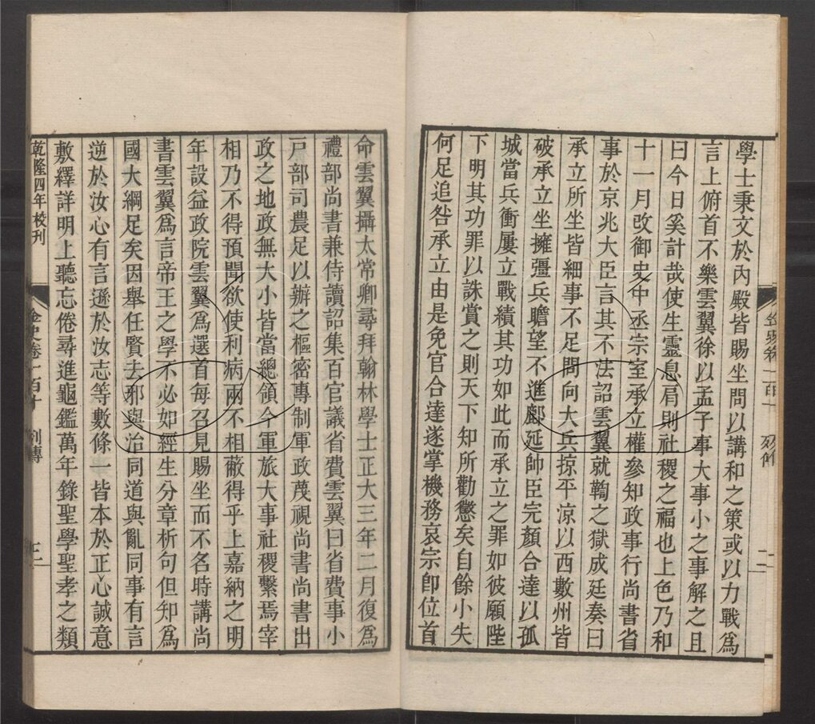 學士秉文於內殿皆賜坐問以講和之策或以力戰爲
言上俯首不樂雲翼徐以孟子事大事小之事解之且
曰今日奚計哉使生靈息肩則社稷之福也上色乃和
十一月改御史中丞宗室承立權參知政事行尚書省
事於京兆大臣言其不法詔雲翼就鞫之獄成廷奏曰
承立所坐皆細事不足問向大兵掠平涼以西數州皆
破承立坐擁彊兵瞻望不進鄜延帥臣完顏合達以孤
城當兵衝屢立戰績其功如此而承立之罪如彼願陛
下明其功罪以誅賞之則天下知所勸懲矣自餘小失
何足追咎承立由是免官合達遂掌機務哀宗卽位首
命雲翼攝太常卿尋拜翰林學士正大三年二月復爲
禮部尚書兼侍讀詔集百官議省費雲翼曰省費事小
戸部司農足以辦之樞密專制軍政蔑視尚書尚書出
政之地政無大小皆當總領今軍旅大事社稷繫焉宰
相乃不得預聞欲使利病兩不相蔽得乎上嘉納之明
年設益政院雲翼爲選首每召見賜坐而不名時講尚
書雲翼爲言帝王之學不必如經生分章析句但知爲
國大綱足矣因舉任賢去邪與治同道與亂同事有言
逆於汝心有言遜於汝志等數條一皆本於正心誠意
敷釋詳明上聽忘倦尋進龜鑑萬年錄聖學聖孝之類
乾隆四年校刊
金史卷一百十 列傳